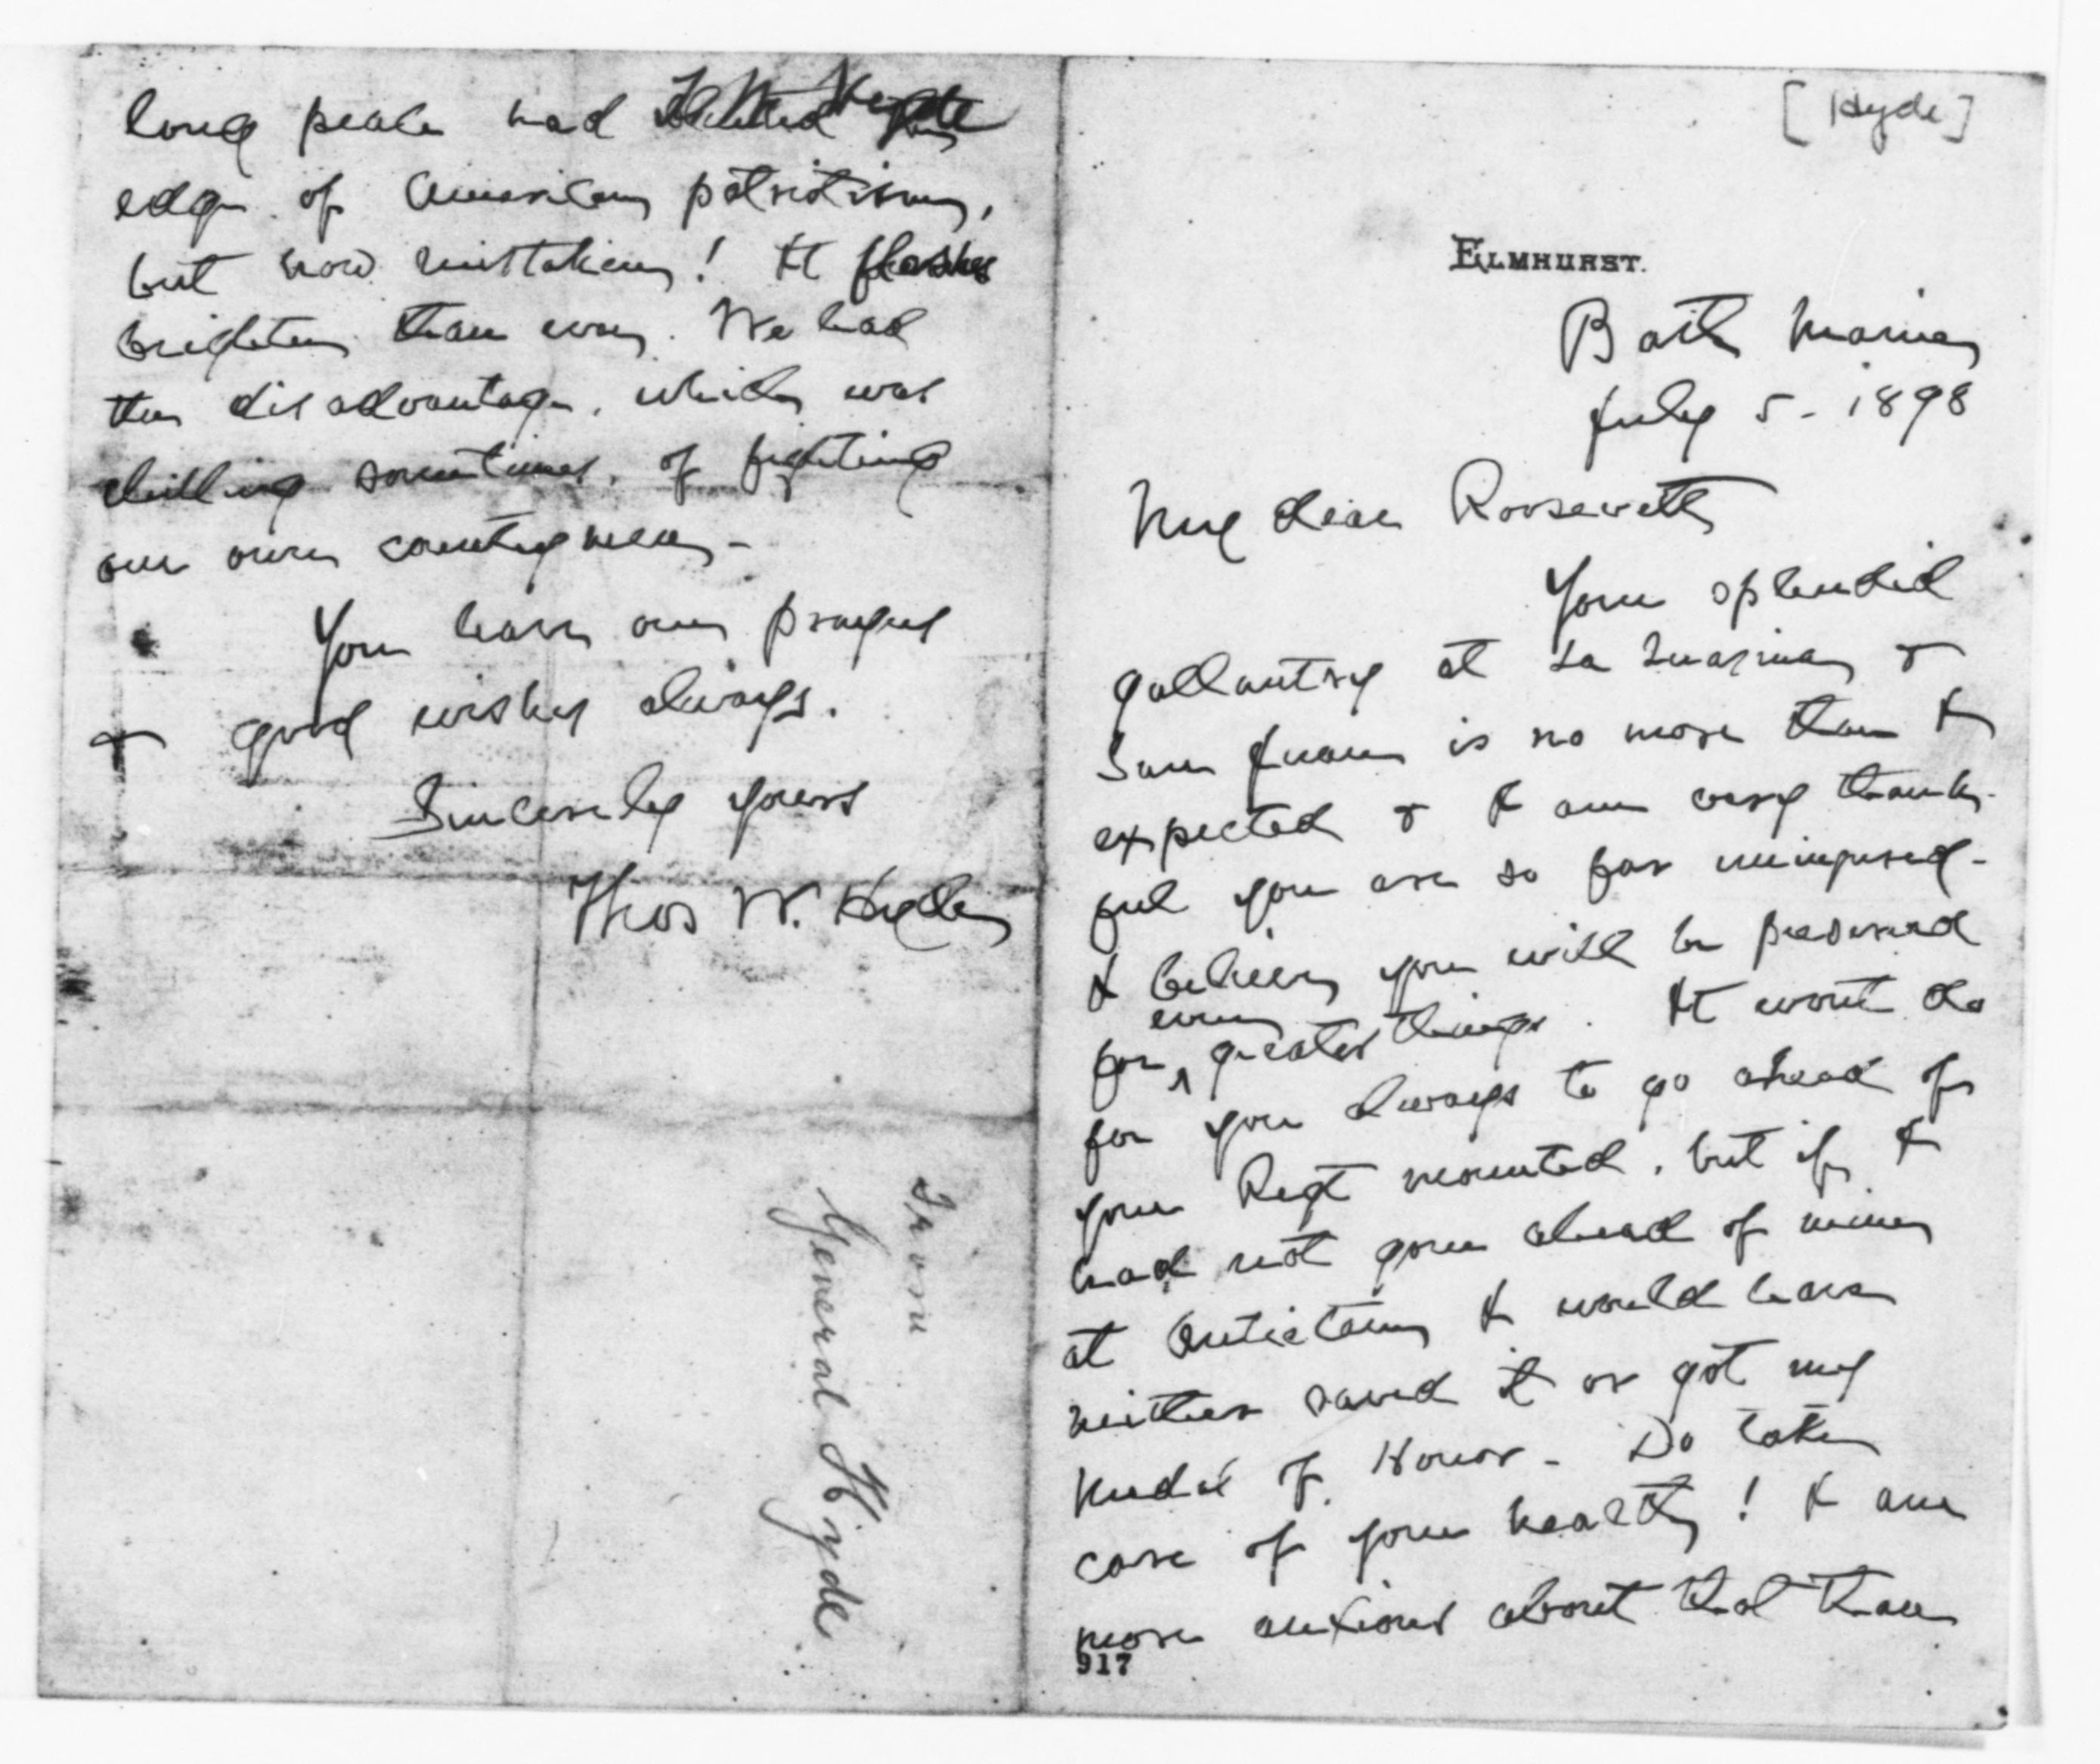 [Hyde]
ELMHURST.
Bath Maine
July 5 - 1898
My dear Roosevelt
Your splendid
gallantry at La Quazina &
San Juan is no more than I
expected & I am very thank-
ful you are so far uninjured -
I believe you will be preserved
for even greater things. It wont do
for you always to go ahead of
your Regt mounted, but if I
had not gone ahead of mine
at Antietam I would have
neither saved it or got my
Medal of Honor - Do take
care of your health! I am
more anxious about that than
917
long peace had the
edge of American patriotism,
but how mistaken! It flashes
brighter than ever. We had
the disadvantage, which was
chilling sometimes, of fighting
our own countrymen -
You have our prayers
& good wishes always.
Sincerely yours
Thos W. Hyde
From
General Hyde